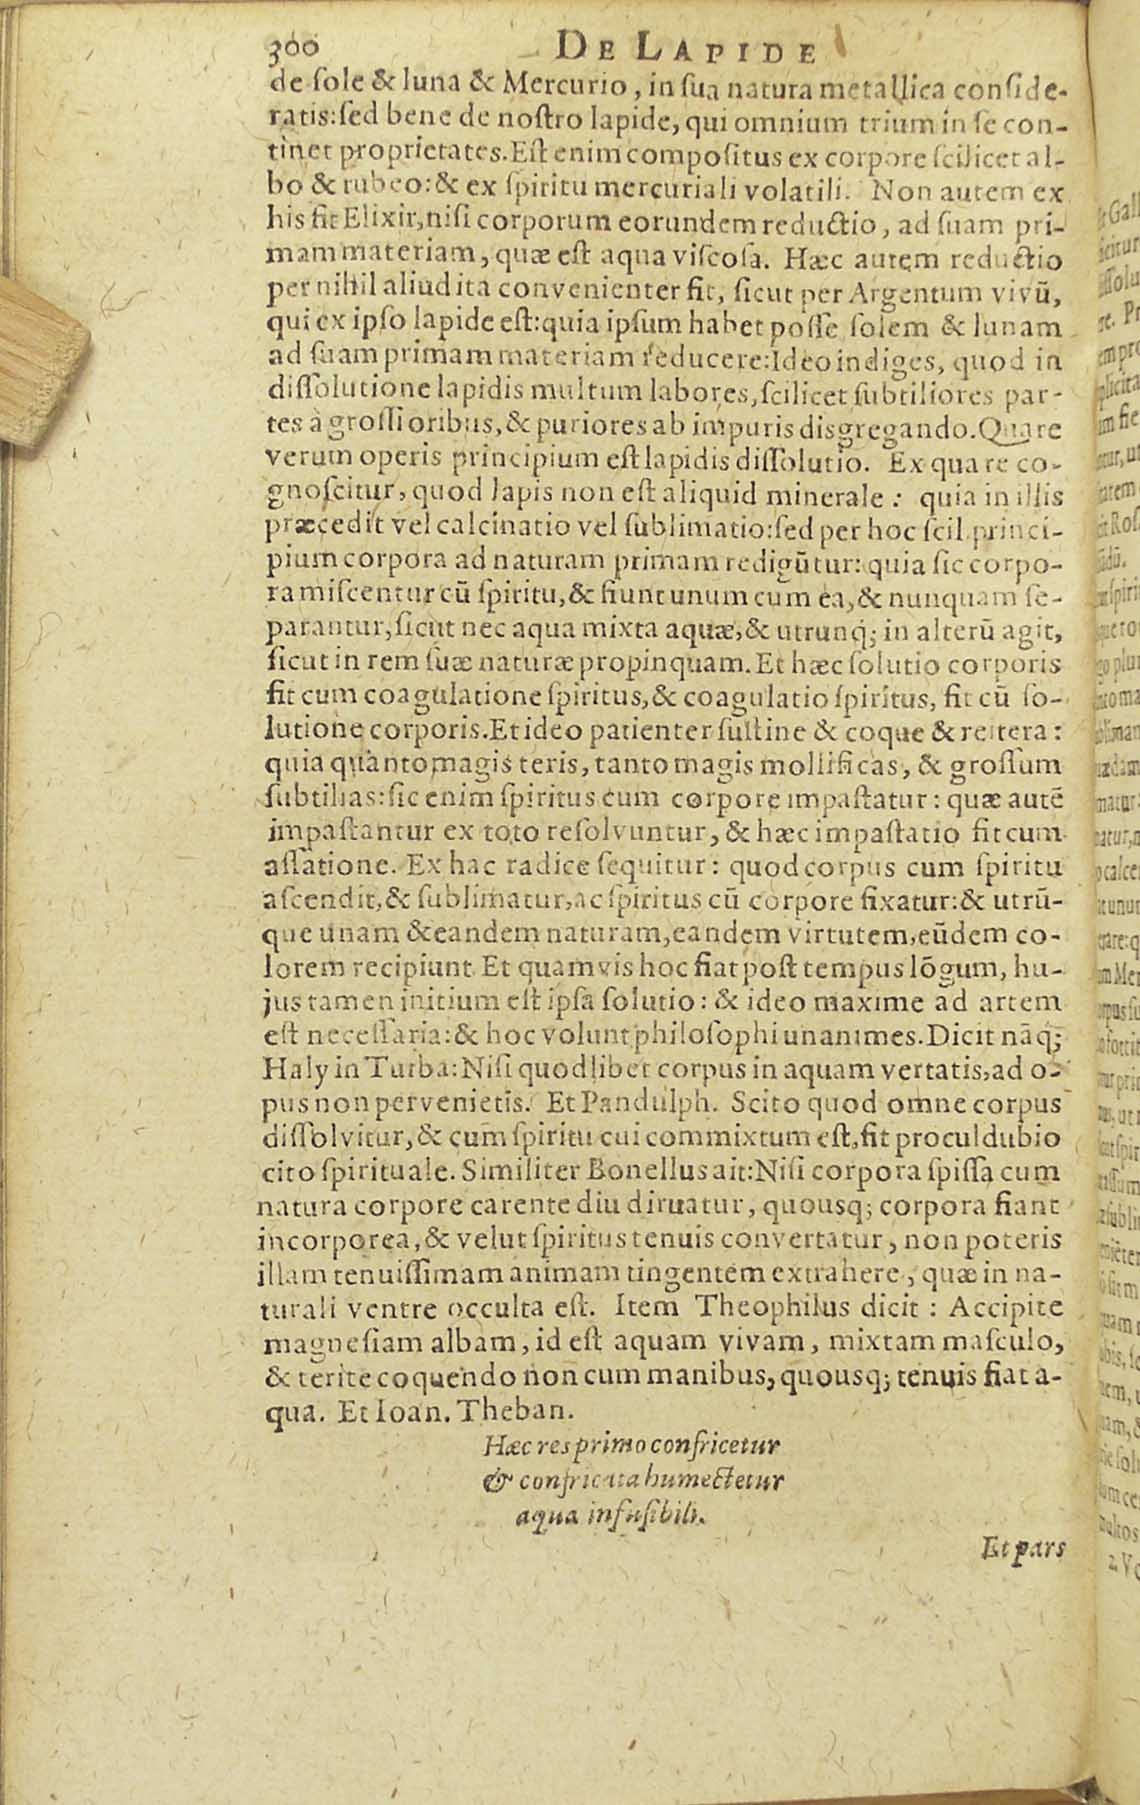 300 DE LAPIDE
de ſole & luna & Mercurio, in ſua natura metallica conſide-
ratis:ſed bene de noſtro lapide, qui omnium trium in ſe con-
tinet proprietates. Eſt enim compoſitus ex corpore ſcilicet al-
bo & rubeo: & ex ſpiritu mercuriali volatili. Non autem ex
his fit Elixir, niſi corporum eorundem reductio, ad ſuam pri-
mam materiam, quæ eſt aqua viſcoſa. Hæc autem reductio
per nihil aliud ita convenienter fit, ſicut per Argentum vivū,
qui ex ipſo lapide eſt: quia ipſum habet poſſe ſolem & lunam
ad ſuam primam materiam reducere: Ideo indiges, quod in
diſſolutione lapidis multum labores, ſcilicet ſubtiliores par-
tes à groſſioribus, & puriores ab impuris disgregando. Quare
verum operis principium eſt lapidis diſſolutio. Ex qua re co-
gnoſcitur, quod lapis non eſt aliquid minerale: quia in illis
præcedit vel calcinatio vel ſublimatio: ſed per hoc ſcil. princi-
pium corpora ad naturam primam redigūtur: quia ſic corpo-
ra miſcentur cū ſpiritu, & fiunt unum cum ea, & nunquam ſe-
parantur, ſicut nec aqua mixta aquæ, & utrunq; in alterū agit,
ſicut in rem ſuæ naturæ propinquam. Et hæc ſolutio corporis
fit cum coagulatione ſpiritus, & coagulatio ſpiritus, fit cū ſo-
lutione corporis. Et ideo patienter ſuſtine & coque & reitera:
quia quanto magis teris, tanto magis mollificas, & groſſum
ſubtilias: ſic enim ſpiritus cum corpore impaſtatur: quæ autē
impaſtantur ex toto reſolvuntur, & hæc impaſtatio fit cum
aſſatione. Ex hac radice ſequitur: quod corpus cum ſpiritu
aſcendit, & ſublimatur, ac ſpiritus cū corpore fixatur: & utrū-
que unam & eandem naturam, eandem virtutem, eūdem co-
lorem recipiunt. Et quamvis hoc fiat poſt tempus lōgum, hu-
jus tamen initium eſt ipſa ſolutio: & ideo maxime ad artem
eſt neceſſaria: & hoc volunt philoſophi unanimes. Dicit nāq;
Haly in Turba: Niſi quodlibet corpus in aquam vertatis, ad o-
pus non pervenietis. Et Pandulph. Scito quod omne corpus
diſſolvitur, & cum ſpiritu cui commixtum eſt, fit procul dubio
cito ſpirituale. Similiter Bonellus ait: Niſi corpora ſpiſſa cum
natura corpore carente diu diruatur, quousq; corpora fiant
incorporea, & velut ſpiritus tenuis convertatur, non poteris
illam tenuiſſimam animam tingentem extrahere, quæ in na-
turali ventre occulta eſt. Item Theophilus dicit: Accipite
magneſiam albam, id eſt aquam vivam, mixtam maſculo,
& terite coquendo non cum manibus, quousq; tenuis fiat a-
qua. Et Ioan. Theban.
Hæc res primo confricetur
& confricata humectetur
aqua infuſibili.
Et pars